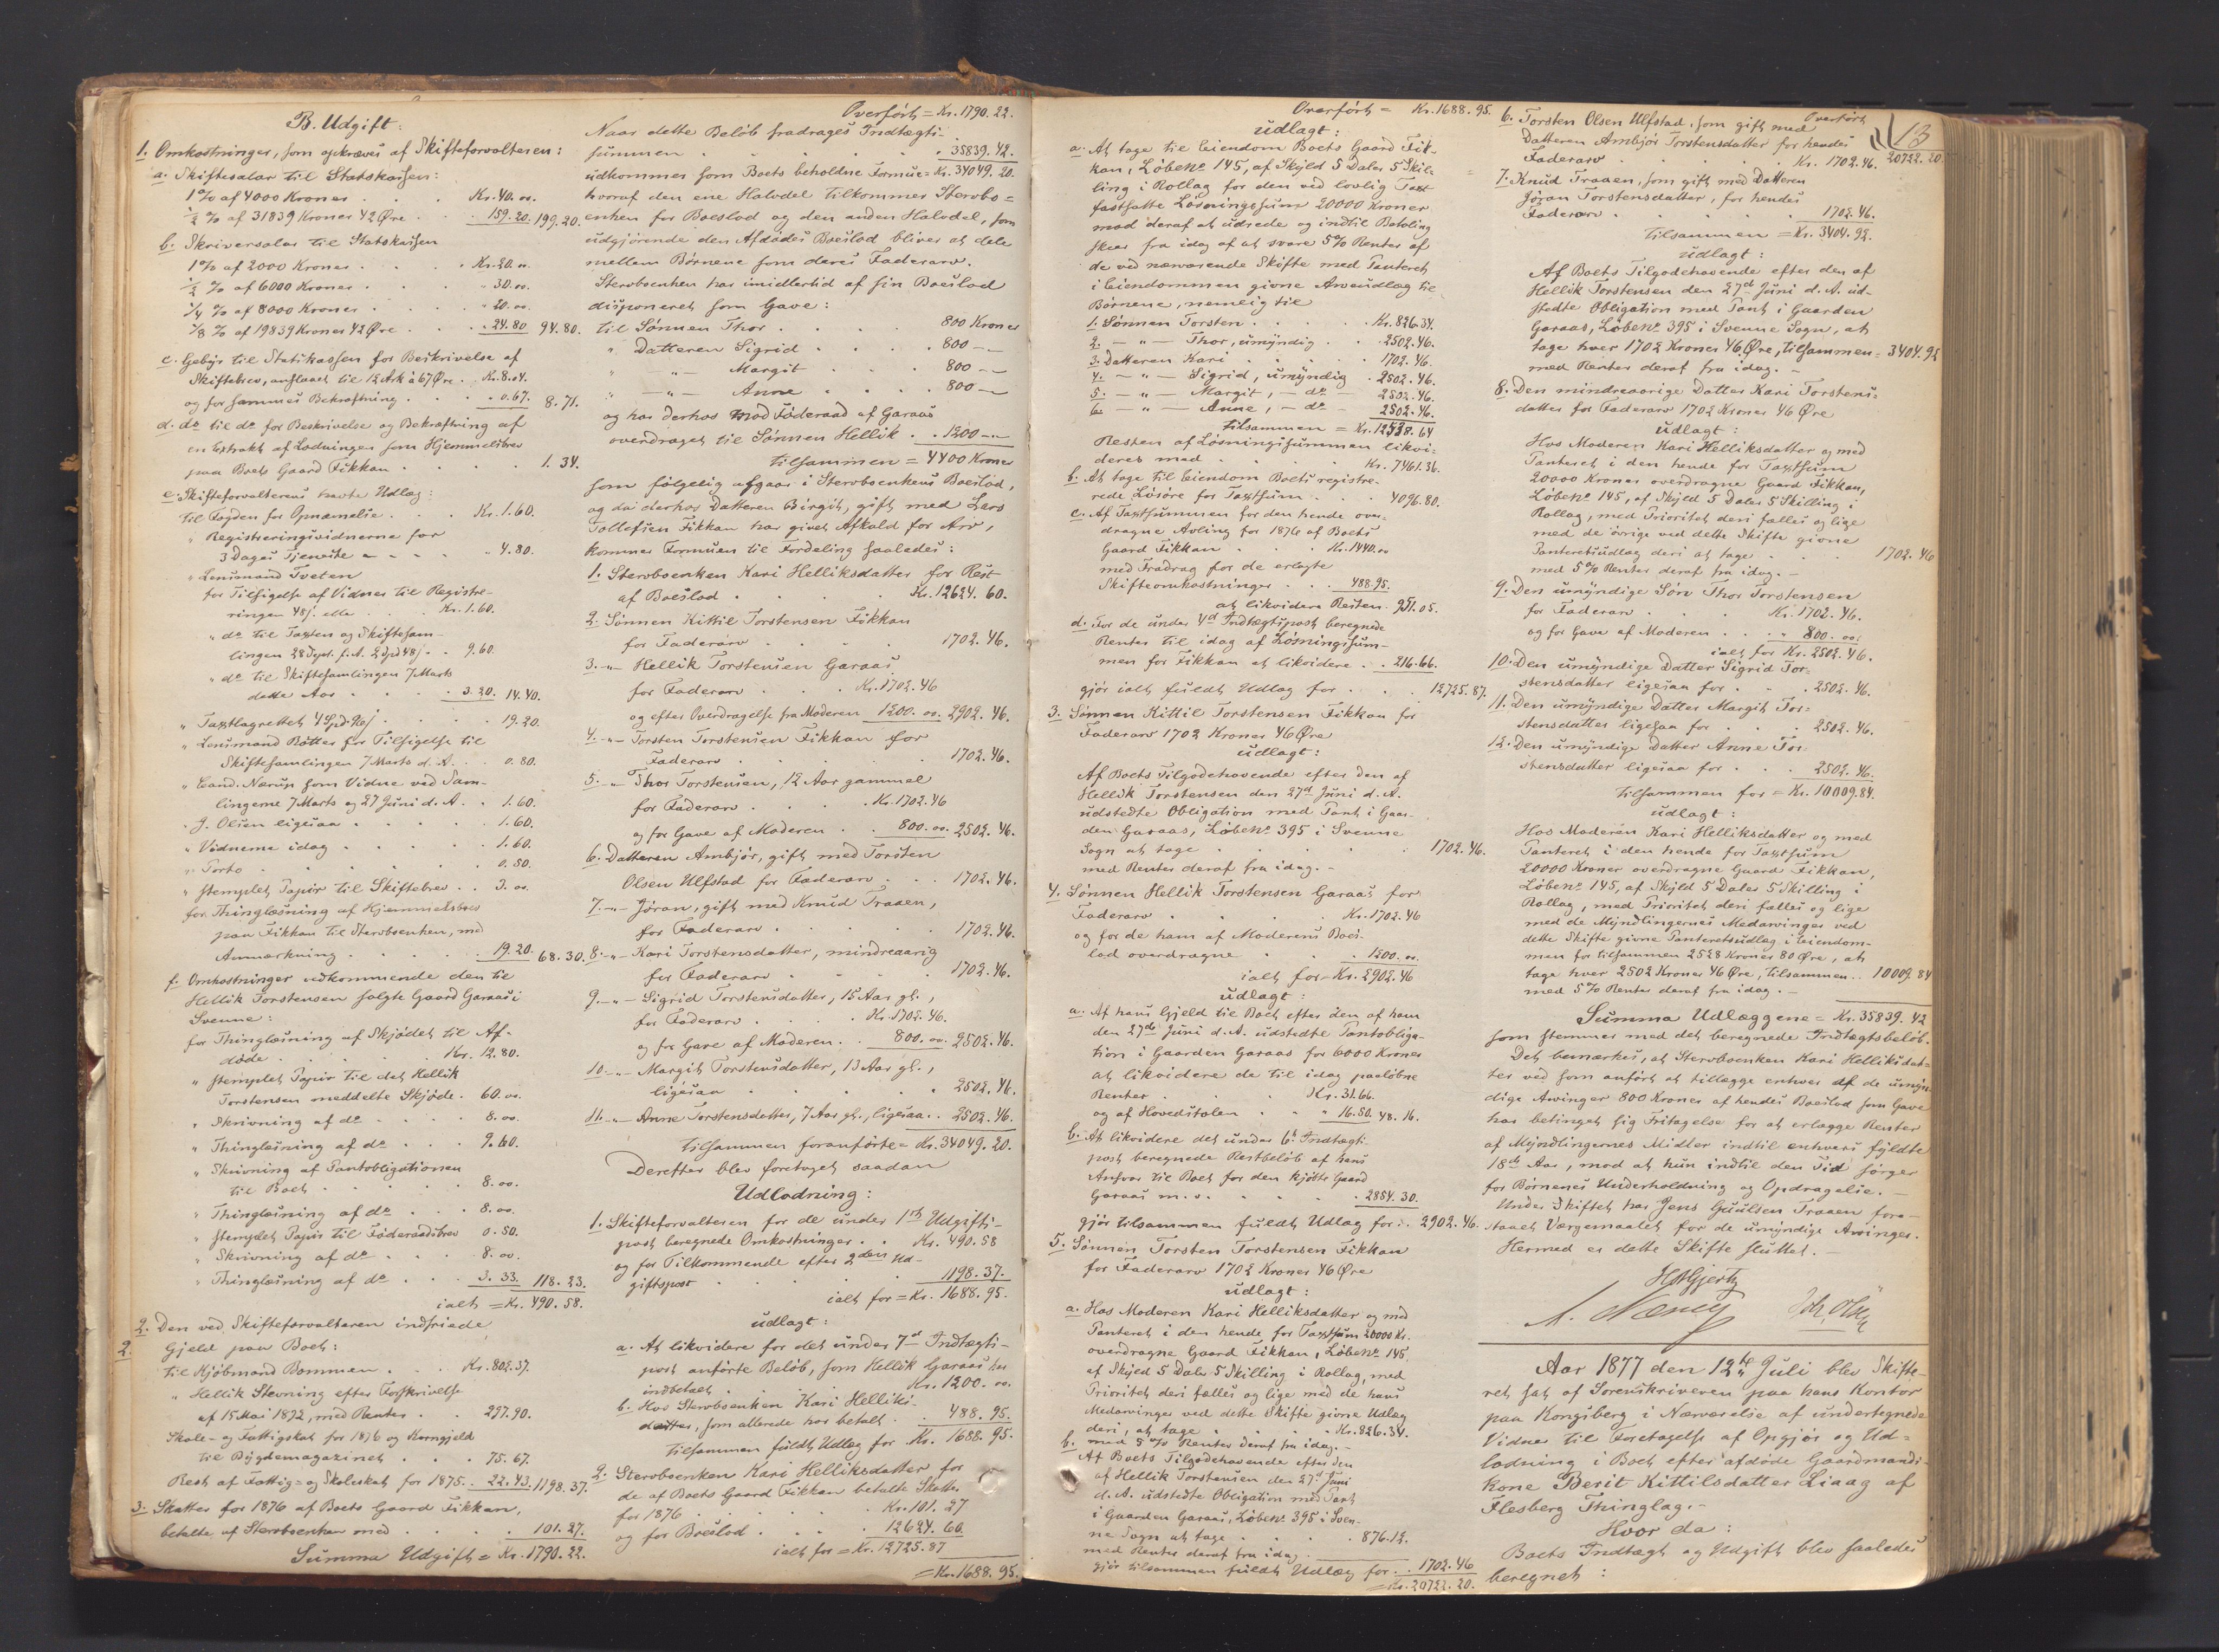 B. Udgift:
1. Omkostninger, som opkræves af Skifteforvalteren:
a. Skiftesalar til Statskassen:
1% af 4000 Kroner . . Kr. 40. 00.
½ % af 31839 Kroner 42 Øre . . 159. 20. 199. 20.
b. Skriversalar til Statskassen
1% af 2000 Kroner . . . Kr. 20. "
½ % af 6000 Kroner . . . " 30. 00.
¼ % af 8000 Kroner . . . " 20. 00.
⅛ % af 19839 Kroner 42 Øre . . . 24. 80 94. 80.
c. Gebyr til Statskassen for Beskrivelse af
Skiftebrev, anslaaet til 12 Ark à 67 Øre . Kr. 8. 04.
og for sammes Bekræftning . . . 0. 67. 8. 71.
d. do til do for Beskrivelse og Bekræftning af
en Extrakt af Lodningen som Hjemmelsbrev
paa Boets Gaard Fikkan . . . . 1. 34.
e. Skifteforvalterens havte Udlæg:
til Fogden for Opnævnelse . . Kr. 1. 60.
" Registreringsvidnerne for
3 Dages Tjeneste . . . . " 4. 80.
" Lensmand Tveten
for Tilsigelse af Vidner til Registre-
ringen 48 j. eller . . . Kr. 1. 60.
" do til Taxten og Skiftesam-
lingen 28 Sept. f. A. 2 Spd 48 j. . 9. 60.
" do til Skiftesamlingen 7 Marts
dette Aar . . . . 3. 20. 14. 40.
" Taxtlagrettet 4 Spd. 96 j . . . 19. 20.
" Lensmand Bøtter for Tilsigelse til
Skiftesamlingen 7 Marts d. A. . . 0. 80.
" Cand. Nærup som Vidne ved Sam-
lingerne 7 Marts og 27 Juni d. A. . 1. 60.
" J. Olsen ligesaa . . . . 1. 60.
" Vidnerne idag . . . . 1. 60.
" Porto . . . . . 0. 50.
" stemplet Papir til Skiftebrev . . 3. 00.
for Thinglæsning af Hjemmelsbrev
paa Fikkan til Stervboenken, med
Anmærkning . . . . 19. 20. 68. 30.
f. Omkostninger vedkommende den til
Hellik Torstensen solgte Gaard Garaas i
Svenne:
for Thinglæsning af Skjødet til Af-
døde . . . . . Kr. 12. 80.
" stemplet Papir til det Hellik
Torstensen meddelte Skjøde . 60. 00.
" Skrivning af do . . . 8. 00.
" Thinglæsning af do . . . 9. 60.
" Skrivning af Pantobligationen
til Boet . . . . . 8. 00.
" Thinglæsning af do . . . 8. 00.
" stemplet Papir til Føderaadsbrev 0. 50.
" Skrivning af do . . . 8. 00.
" Thinglæsning af do . . . 3. 33. 118. 23.
ialt = Kr. 490. 58.
2. Den ved Skifteforvalteren indfriede
Gjeld paa Boet:
til Kjøbmand Bommen . . Kr. 802. 37.
" Hellik Stevning efter Forskrivelse
af 15 Mai 1872, med Renter . . 297. 90.
Skole- og Fattigskat for 1876 og Korngjeld
til Bygdemagazinet . . . 75. 67.
Rest af Fattig- og Skoleskat for 1875 . . 22. 43. 1198. 37.
3. Skatter for 1876 af Boets Gaard Fikkan,
betalte af Stervboenken med . . . 101. 27.
Summa Udgift = Kr. 1790. 22.
Overført = Kr. 1790. 22.
Naar dette Beløb fradrages Indtægts-
summen . . . . . . 35839. 42.
udkommer som Boets beholdne Formue = Kr. 34049. 20.
hvoraf den ene Halvdel tilkommer Stervbo-
enken for Boeslod og den anden Halvdel, som
udgjørende den Afdødes Boeslod bliver at dele
mellem Børnene som deres Faderarv.
Stervboenken har imidlertid af sin Boeslod
disponeret som Gave:
til Sønnen Thor . . . . 800 Kroner
" Datteren Sigrid . . . . 800 —
" — " — Margit . . . 800 —
" — " — Anne . . . 800 —
og har derhos mod Føderaad af Garaas
overdraget til Sønnen Hellik . . 1200 —
tilsammen = 4400 Kroner
som følgelig afgaar i Stervboenkens Boeslod,
og da derhos Datteren Birgit, gift med Lars
Tollefsen Fikkan har givet Afkald for Arv,
kommer Formuen til Fordeling saaledes:
1. Stervboenken Kari Helliksdatter for Rest
af Boeslod . . . . Kr. 12624. 60.
2. Sønnen Kittil Torstensen Fikkan
for Faderarv . . . . 1702. 46.
3. — " — Hellik Torstensen Garaas
for Faderarv . . . Kr. 1702. 46
og efter Overdragelse fra Moderen 1200. 00. 2902. 46.
4. — " — Torsten Torstensen Fikkan for
Faderarv . . . . . 1702. 46.
5. — " — Thor Torstensen, 12 Aar gammel
for Faderarv . . . . Kr. 1702. 46
og for Gave af Moderen . . 800. 00. 2502. 46.
6. Datteren Ambjør, gift med Torsten
Olsen Ulfstad for Faderarv . . . 1702. 46.
7. — " — Jøran, gift med Knud Traaen,
for Faderarv . . . . . 1702. 46.
8. — " — Kari Torstensdatter, mindreaarig
for Faderarv . . . . . 1702. 46.
9. — " — Sigrid Torstensdatter, 15 Aar gl.,
for Faderarv . . . . Kr. 1702. 46.
og for Gave af Moderen . . 800. 00. 2502. 46.
10. — " — Margit Torstensdatter, 13 Aar gl.,
ligesaa . . . . . . 2502. 46.
11. — " — Anne Torstensdatter, 7 Aar gl., ligesaa . . 2502. 46.
tilsammen foranførte = Kr. 34049. 20.
Derefter blev foretaget saadan
Udlodning:
1. Skifteforvalteren for de under 1ste Udgifts-
post beregnede Omkostninger . . Kr. 490. 58
og for Tilkommende efter 2den Ud-
giftspost . . . . . 1198. 37.
ialt for = Kr. 1688. 95.
udlagt:
a. At likvidere for det under 7de Indtægts-
post anførte Beløb, som Hellik Garaas har
indbetalt . . . . . Kr. 1200. 00.
b. Hos Stervboenken Kari Helliks-
datter, som allerede har betalt . . 488. 95.
tilsammen fuldt Udlæg for Kr. 1688. 95.
2. Stervboenken Kari Helliksdatter for
de af Boets Gaard Fikkan betalte Skatter
for 1876 . . . . Kr. 101. 27
og for Boeslod . . . . 12624. 60.
ialt for = Kr. 12725. 87
= Kr. 1688. 95.
Overført = Kr. 1688. 95.
udlagt:
a. At tage til Eiendom Boets Gaard Fik-
kan, Løbeno 145, af Skyld 5 Daler 5 Skil-
ling i Rollag for den ved lovlig Taxt
fastsatte Løsningssum 20000 Kroner
mod deraf at udrede og indtil Betaling
skeer fra idag af at svare 5% Renter af
de ved nærværende Skifte med Panteret
i Eiendommen givne Arveudlæg til
Børnene, nemlig til
1. Sønnen Torsten . . . . Kr. 826. 34.
2. — " — Thor, umyndig . . 2502. 46.
3. Datteren Kari . . . . 1702. 46.
4. — " — Sigrid, umyndig . 2502. 46.
5. — " — Margit, — do — 2502. 46.
6. — " — Anne, — do — 2502. 46.
tilsammen = Kr. 12538. 64
Resten af Løsningssummen likvi-
deres med . . . . Kr. 7461. 36.
b. At tage til Eiendom Boets registre-
rede Løsøre for Taxtsum . . . 4096. 80.
c. Af Taxtsummen for den hende over-
dragne Avling for 1876 af Boets
Gaard Fikkan . . . Kr. 1440. 00
med Fradrag for de erlagte
Skifteomkostninger . . . 488. 95.
at likvidere Resten . 951. 05.
d. For de under 4de Indtægtspost beregnede
Renter til idag af Løsningssum-
men for Fikkan at likvidere . . 216. 66.
gjør ialt fuldt Udlæg for . . . 12725. 87.
3. Sønnen Kittil Torstensen Fikkan for
Faderarv 1702 Kroner 46 Øre
udlagt:
Af Boets Tilgodehavende efter den af
Hellik Torstensen den 27de Juni d. A.
udstedte Obligation med Pant i Gaar-
den Garaas, Løbeno 395 i Svenne
Sogn at tage . . . . . 1702. 46.
med Renter deraf fra idag. —
4. Sønnen Hellik Torstensen Garaas for
Faderarv . . . . . Kr. 1702. 46
og for de ham af Moderens Boes-
lod overdragne . . . 1200. 00.
ialt for = Kr. 2902. 46
udlagt:
a. Af hans Gjeld til Boet efter den af ham
den 27de Juni d. A. udstedte Pantobliga-
tion i Gaarden Garaas for 6000 Kroner
at likvidere de til idag paaløbne
Renter . . . . Kr. 31. 66.
og af Hovedstolen . . " 16. 50. 48. 16.
b. At likvidere det under 6te Indtægts-
post beregnede Restbeløb af hans
Ansvar til Boet for den kjøbte Gaard
Garaas m. v. . . . . . 2854. 30.
gjør tilsammen fuldt Udlæg for . . 2902. 46.
5. Sønnen Torsten Torstensen Fikkan
for Faderarv 1702 Kroner 46 Øre
udlagt:
a. Hos Moderen Kari Helliksdatter og med
Panteret i den hende for Taxtsum 20000 Kr.
overdragne Gaard Fikkan, Løbeno 145,
af Skyld 5 Daler 5 Skilling i Rollag, med
Prioritet deri fælles og lige med de hans
Medarvinger ved dette Skifte givne Udlæg
deri, at tage . . . . . Kr. 826. 34.
med 5 % Renter deraf fra idag. —
b. Af Boets Tilgodehavende efter den
af Hellik Torstensen den 27de Juni
d. A. udstedte Obligation med Pant
i Gaarden Garaas, Løbeno 395 i Sven-
ne Sogn at tage . . . . 876. 12.
med Renter deraf fra idag.
gjør tilsammen fuldt Udlæg for . . 1702. 46
= Kr. 20722. 20.
13
Overført
20722. 20.
6. Torsten Olsen Ulfstad, som gift med
Datteren Ambjør Torstensdatter for hendes
Faderarv . . . . . Kr. 1702. 46.
7. Knud Traaen, som gift med Datteren
Jøran Torstensdatter, for hendes
Faderarv . . . . . 1702. 46.
tilsammen = Kr. 3404. 92.
udlagt:
Af Boets Tilgodehavende efter den af
Hellik Torstensen den 27de Juni d. A. ud-
stedte Obligation med Pant i Gaarden
Garaas, Løbeno 395 i Svenne Sogn, at
tage hver 1702 Kroner 46 Øre, tilsammen = 3404. 92
med Renter deraf fra idag. —
8. Den mindreaarige Datter Kari Torstens-
datter for Faderarv 1702 Kroner 46 Øre
udlagt:
Hos Moderen Kari Helliksdatter og med
Panteret i den hende for Taxtsum
20000 Kroner overdragne Gaard Fikkan,
Løbeno 145, af Skyld 5 Daler 5 Skilling i
Rollag, med Prioritet deri fælles og lige
med de øvrige ved dette Skifte givne
Panteretsudlæg deri at tage . . . 1702. 46
med 5% Renter deraf fra idag. —
9. Den umyndige Søn Thor Torstensen
for Faderarv . . . Kr. 1702. 46.
og for Gave af Moderen . . . " 800. 00.
ialt for Kr. 2502. 46.
10. Den umyndige Datter Sigrid Tor-
stensdatter ligesaa for . . . 2502. 46.
11. Den umyndige Datter Margit Tor-
stensdatter ligesaa for . . . 2502. 46.
12. Den umyndige Datter Anne Tor-
stensdatter ligesaa for . . . 2502. 46.
tilsammen for = Kr. 10009. 84.
udlagt:
Hos Moderen Kari Helliksdatter og med
Panteret i den hende for Taxtsum
20000 Kroner overdragne Gaard Fikkan,
Løbeno 145, af Skyld 5 Daler 5 Skilling i
Rollag, med Prioritet deri fælles og lige
med de Myndlingernes Medarvinger ved
dette Skifte givne Panteretsudlæg i Eiendom-
men for tilsammen 2528 Kroner 80 Øre, at
tage hver 2502 Kroner 46 Øre, tilsammen . . 10009. 84
med 5% Renter deraf fra idag. —
Summa Udlæggene = Kr. 35839. 42
som stemmer med det beregnede Indtægtsbeløb.
Det bemærkes, at Stervboenken Kari Helliksdat-
ter ved som anført at tillægge enhver af de umyn-
dige Arvinger 800 Kroner af hendes Boeslod som Gave
har betinget sig Fritagelse for at erlægge Renter
af Myndlingernes Midler indtil enhvers fyldte
18de Aar, mod at hun indtil den Tid sørger
for Børnenes Underholdning og Opdragelse. —
Under Skiftet har Jens Guulsen Traaen fore-
staaet Værgemaalet for de umyndige Arvinger.
Hermed er dette Skifte sluttet.
Joh. Olsen
Aar 1877 den 12te Juli blev Skifte-
ret sat af Sorenskriveren paa hans Kontor
paa Kongsberg i Nærværelse af undertegnede
Vidner til Foretagelse af Opgjør og Ud-
lodning i Boet efter afdøde Gaardmands-
kone Berit Kittilsdatter Liaag af
Flesberg Thinglag. —
Hvor da:
Boets Indtægt og Udgift blev saaledes
beregnet: